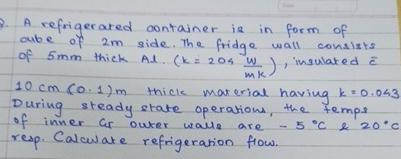 2. A refrigerated container is in form of
cube of 2m side. The fridge wall consists
of 5mm thick Al. (k = 204 W/mK), insulated c̄
10 cm (0.1)m thick material having k = 0.043
During steady state operations, the temps
of inner & outer walls are - 5 °C & 20°C
resp. Calculate refrigeration flow.